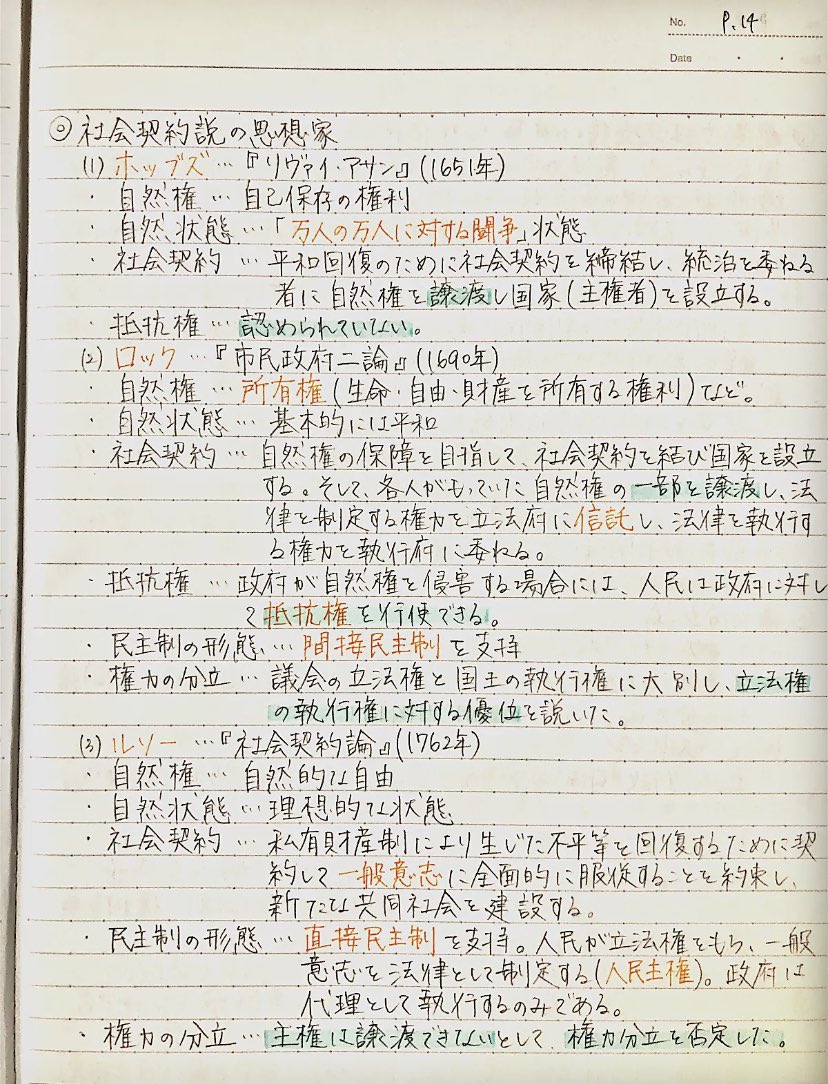 No. P.14
Date
◎社会契約説の思想家
(1) ホッブズ…『リヴァイアサン』(1651年)
・自然権…自己保存の権利
・自然状態…「万人の万人に対する闘争」状態
・社会契約…平和回復のために社会契約を締結し、統治を委ねる
者に自然権を譲渡し国家(主権者)を設立する。
・抵抗権…認められていない。
(2) ロック…『市民政府二論』(1690年)
・自然権…所有権(生命・自由・財産を所有する権利)など。
・自然状態…基本的には平和
・社会契約…自然権の保障を目指して、社会契約を結び国家を設立
する。そして、各人がもっていた自然権の一部を譲渡し、法
律を制定する権力を立法府に信託し、法律を執行す
る権力を執行府に委ねる。
・抵抗権…政府が自然権を侵害する場合には、人民は政府に対し
て抵抗権を行使できる。
・民主制の形態…間接民主制を支持
・権力の分立…議会の立法権と国王の執行権に大別し、立法権
の執行権に対する優位を説いた。
(3) ルソー…『社会契約論』(1762年)
・自然権…自然的な自由
・自然状態…理想的な状態
・社会契約…私有財産制により生じた不平等を回復するために契
約して一般意志に全面的に服従することを約束し、
新たな共同社会を建設する。
・民主制の形態…直接民主制を支持。人民が立法権をもち、一般
意志を法律として制定する(人民主権)。政府は
代理として執行するのみである。
・権力の分立…主権は譲渡できないとして、権力分立を否定した。